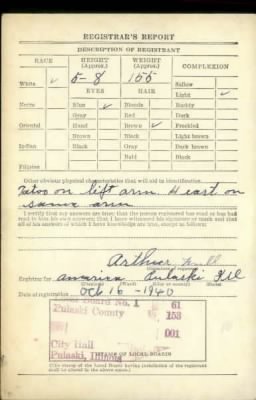 REGISTRAR'S REPORT
DESCRIPTION OF REGISTRANT
RACE HEIGHT (Approx.) WEIGHT (Approx.) COMPLEXION
White ✓ 5-8 155 Sallow
EYES HAIR Light ✓
Negro Blue ✓ Blonde Ruddy
Gray Red Dark
Oriental Hazel Brown ✓ Freckled
Brown Black Light brown
Indian Black Gray Dark brown
Bald Black
Filipino
Other obvious physical characteristics that will aid in identification
Tatoo on left arm
same arm
I certify that my answers are true; that the person registered has read or has had
read to him his own answers; that I have witnessed his signature or mark and that
all of his answers of which I have knowledge are true, except as follows:
Arthur
Registrar for America Pulaski Ill
Date of registration Oct 16 - 1940
Board No. 1 61
Pulaski County 153
001
City Hall
Pulaski, Illinois
(STAMP OF LOCAL BOARD)
(The stamp of the Local Board having jurisdiction of the registrant
shall be placed in the above space.)